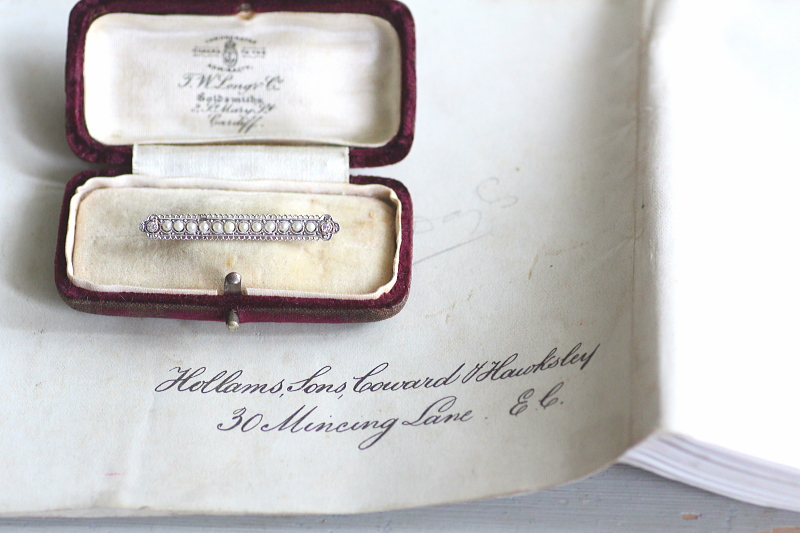 T. W. Long & Co
Goldsmiths
2 St Mary St
Cardiff.
Hollams, Sons, Coward & Hawksley
30 Mincing Lane. E. C.